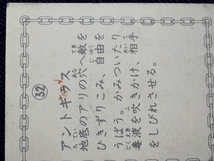 32
アントギラス
地底のアリの穴へ敵を
ひきずりこみ、自由を
うばう。かみついたり
毒液を吹きかけ、相手
をしびれさせる。